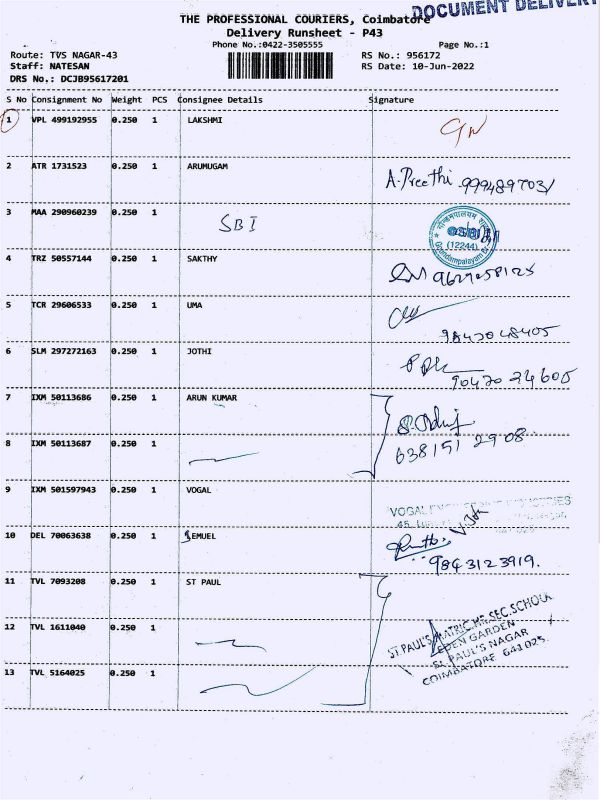 DOCUMENT DELIVERY
THE PROFESSIONAL COURIERS, Coimbatore
Delivery Runsheet - P43
Phone No.:0422-3505555 Page No.:1
Route: TVS NAGAR-43 RS No.: 956172
Staff: NATESAN RS Date: 10-Jun-2022
DRS No.: DCJB95617201
S No Consignment No Weight PCS Consignee Details Signature
1 VPL 499192955 0.250 1 LAKSHMI
2 ATR 1731523 0.250 1 ARUMUGAM
A.Preethi
3 MAA 290960239 0.250 1 SBI
(12244)
4 TRZ 50557144 0.250 1 SAKTHY
5 TCR 29606533 0.250 1 UMA
6 SLM 297272163 0.250 1 JOTHI
90470 24605
7 IXM 50113686 0.250 1 ARUN KUMAR
638151 2908
8 IXM 50113687 0.250 1
9 IXM 501597943 0.250 1 VOGAL
VOGAL
10 DEL 70063638 0.250 1 JEMUEL
9843123919.
11 TVL 7093208 0.250 1 ST PAUL
ST PAUL'S MATRIC.HR.SEC.SCHOOL
EDEN GARDEN
12 TVL 1611040 0.250 1
ST PAUL'S NAGAR
COIMBATORE 641 025.
13 TVL 5164025 0.250 1